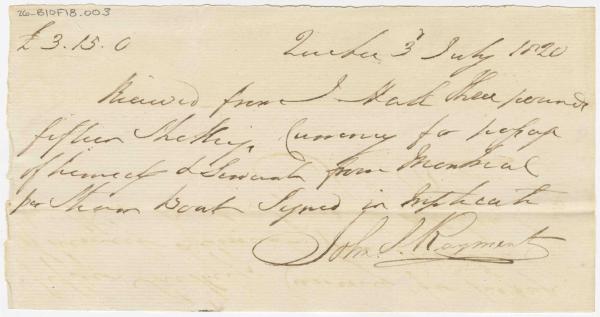 26-B10F18.003
£ 3.15.0
Quebec 3d July 1820
Received from J. Hale Three pounds
fifteen Shellings Currency for passage
of himself & Servant from Montreal
per Steam Boat Signed in triplicate
John S. Rayment